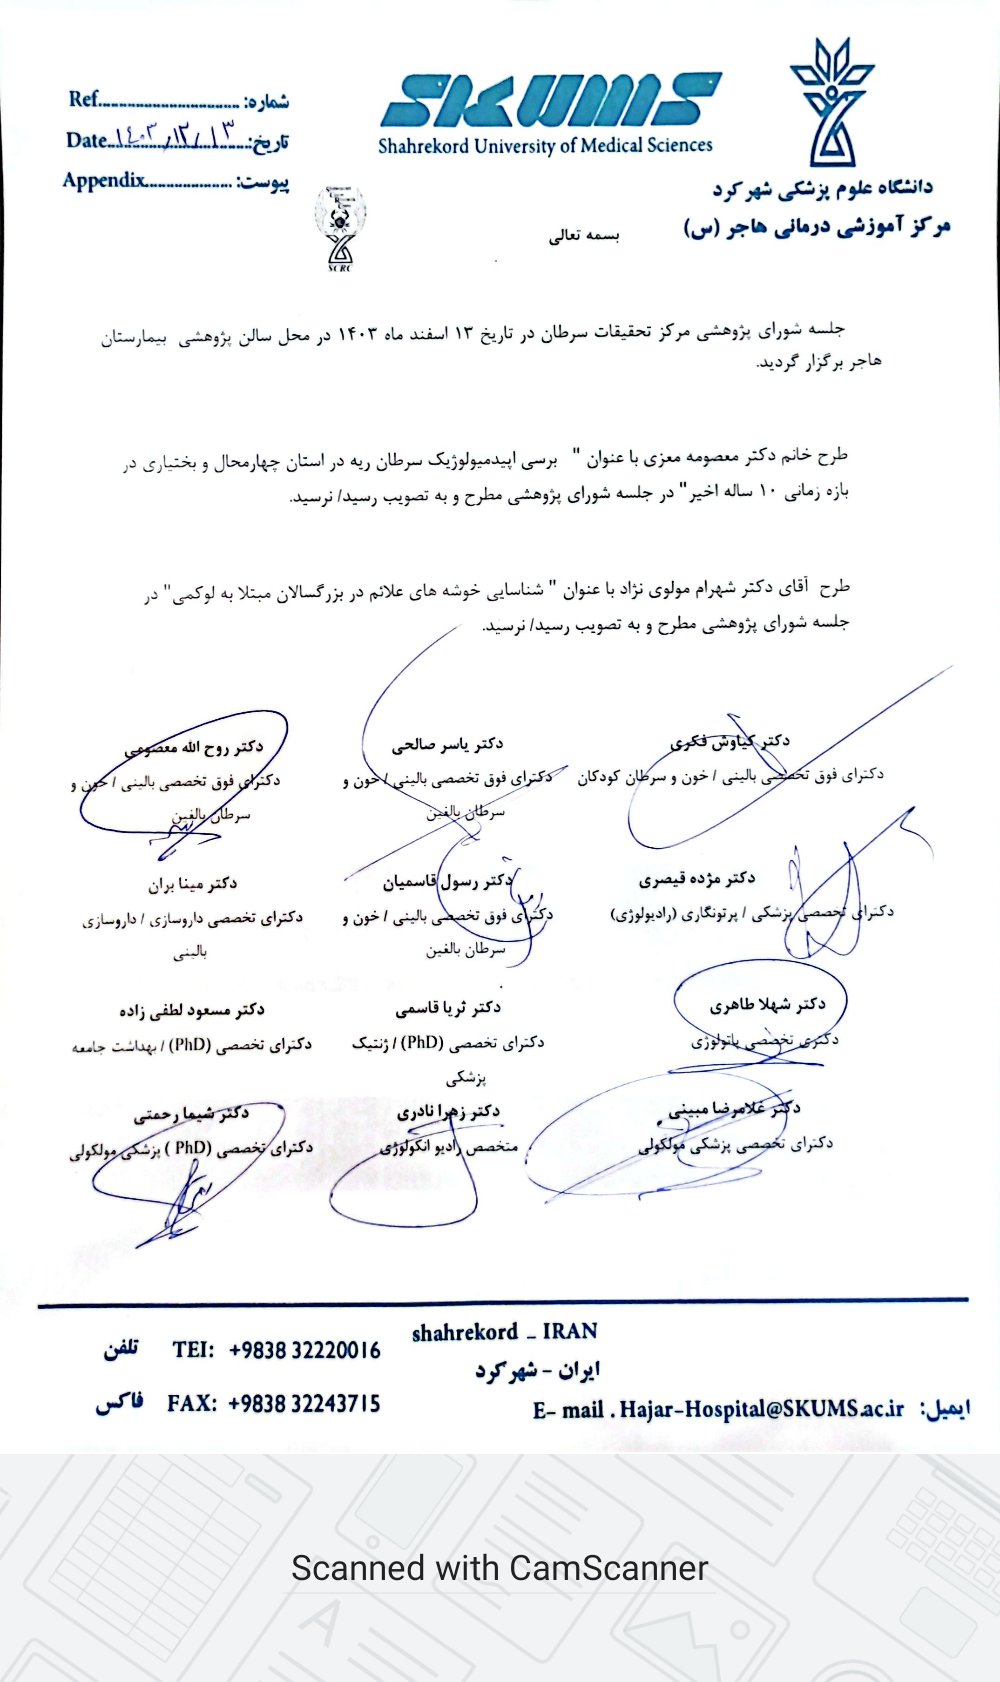 SKUMS
Shahrekord University of Medical Sciences
دانشگاه علوم پزشکی شهر کرد
مرکز آموزشی درمانی هاجر (س)
شماره: Ref
تاریخ: ۱۴۰۳/۱۲/۱۳ Date
پیوست: Appendix
SCRC
بسمه تعالی
جلسه شورای پژوهشی مرکز تحقیقات سرطان در تاریخ ۱۳ اسفند ماه ۱۴۰۳ در محل سالن پژوهشی بیمارستان
هاجر برگزار گردید.
طرح خانم دکتر معصومه معزی با عنوان " برسی اپیدمیولوژیک سرطان ریه در استان چهارمحال و بختیاری در
بازه زمانی ۱۰ ساله اخیر" در جلسه شورای پژوهشی مطرح و به تصویب رسید/ نرسید.
طرح آقای دکتر شهرام مولوی نژاد با عنوان " شناسایی خوشه های علائم در بزرگسالان مبتلا به لوکمی" در
جلسه شورای پژوهشی مطرح و به تصویب رسید/ نرسید.
دکتر کیاوش فکری
دکترای فوق تخصصی بالینی / خون و سرطان کودکان
دکتر یاسر صالحی
دکترای فوق تخصصی بالینی / خون و
سرطان بالغین
دکتر روح الله معصومی
دکترای فوق تخصصی بالینی / خون و
سرطان بالغین
دکتر مژده قیصری
دکترای تخصصی پزشکی / پرتونگاری (رادیولوژی)
دکتر رسول قاسمیان
دکترای فوق تخصصی بالینی / خون و
سرطان بالغین
دکتر مینا بران
دکترای تخصصی داروسازی / داروسازی
بالینی
دکتر شهلا طاهری
دکتری تخصصی پاتولوژی
دکتر ثریا قاسمی
دکترای تخصصی (PhD) / ژنتیک
پزشکی
دکتر مسعود لطفی زاده
دکترای تخصصی (PhD) / بهداشت جامعه
دکتر غلامرضا مبینی
دکترای تخصصی پزشکی مولکولی
دکتر زهرا نادری
متخصص رادیو انکولوژی
دکتر شیما رحمتی
دکترای تخصصی (PhD ) پزشکی مولکولی
shahrekord _ IRAN
ایران - شهر کرد
تلفن TEl: +9838 32220016
فاکس FAX: +9838 32243715
ایمیل: E- mail . Hajar-Hospital@SKUMS.ac.ir
Scanned with CamScanner